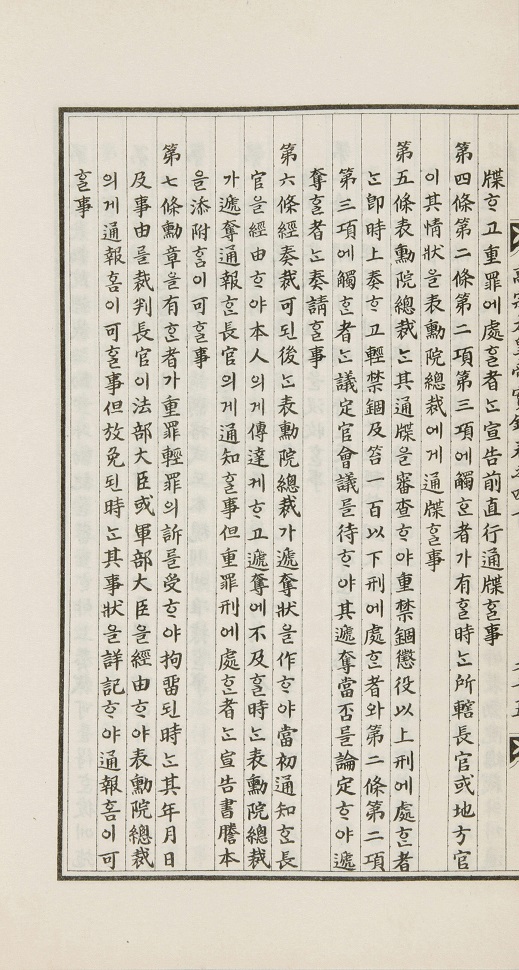 牒ᄒᆞ고重罪에處ᄒᆞᆯ者ᄂᆞᆫ宣告前直行通牒ᄒᆞᆯ事
第四條第二條第二項第三項에觸ᄒᆞᆫ者가有ᄒᆞᆯ時ᄂᆞᆫ所轄長官或地方官
이其情狀을表勳院總裁에게通牒ᄒᆞᆯ事
第五條表勳院總裁ᄂᆞᆫ其通牒을審査ᄒᆞ야重禁錮懲役以上刑에處ᄒᆞᆫ者
ᄂᆞᆫ卽時上奏ᄒᆞ고輕禁錮及笞一百以下刑에處ᄒᆞᆫ者와第二條第二項
第三項에觸ᄒᆞᆫ者ᄂᆞᆫ議定官會議를待ᄒᆞ야其遞奪當否를論定ᄒᆞ야遞
奪ᄒᆞᆯ者ᄂᆞᆫ奏請ᄒᆞᆯ事
第六條經奏裁可된後ᄂᆞᆫ表勳院總裁가遞奪狀을作ᄒᆞ야當初通知ᄒᆞᆫ長
官을經由ᄒᆞ야本人의게傳達케ᄒᆞ고遞奪에不及ᄒᆞᆯ時ᄂᆞᆫ表勳院總裁
가遞奪通報ᄒᆞᆫ長官의게通知ᄒᆞᆯ事但重罪刑에處ᄒᆞᆫ者ᄂᆞᆫ宣告書謄本
을添附ᄒᆞᆷ이可ᄒᆞᆯ事
第七條勳章을有ᄒᆞᆫ者가重罪輕罪의訴를受ᄒᆞ야拘留된時ᄂᆞᆫ其年月日
及事由를裁判長官이法部大臣或軍部大臣을經由ᄒᆞ야表勳院總裁
의게通報ᄒᆞᆷ이可ᄒᆞᆯ事但放免된時ᄂᆞᆫ其事狀을詳記ᄒᆞ야通報ᄒᆞᆷ이可
ᄒᆞᆯ事